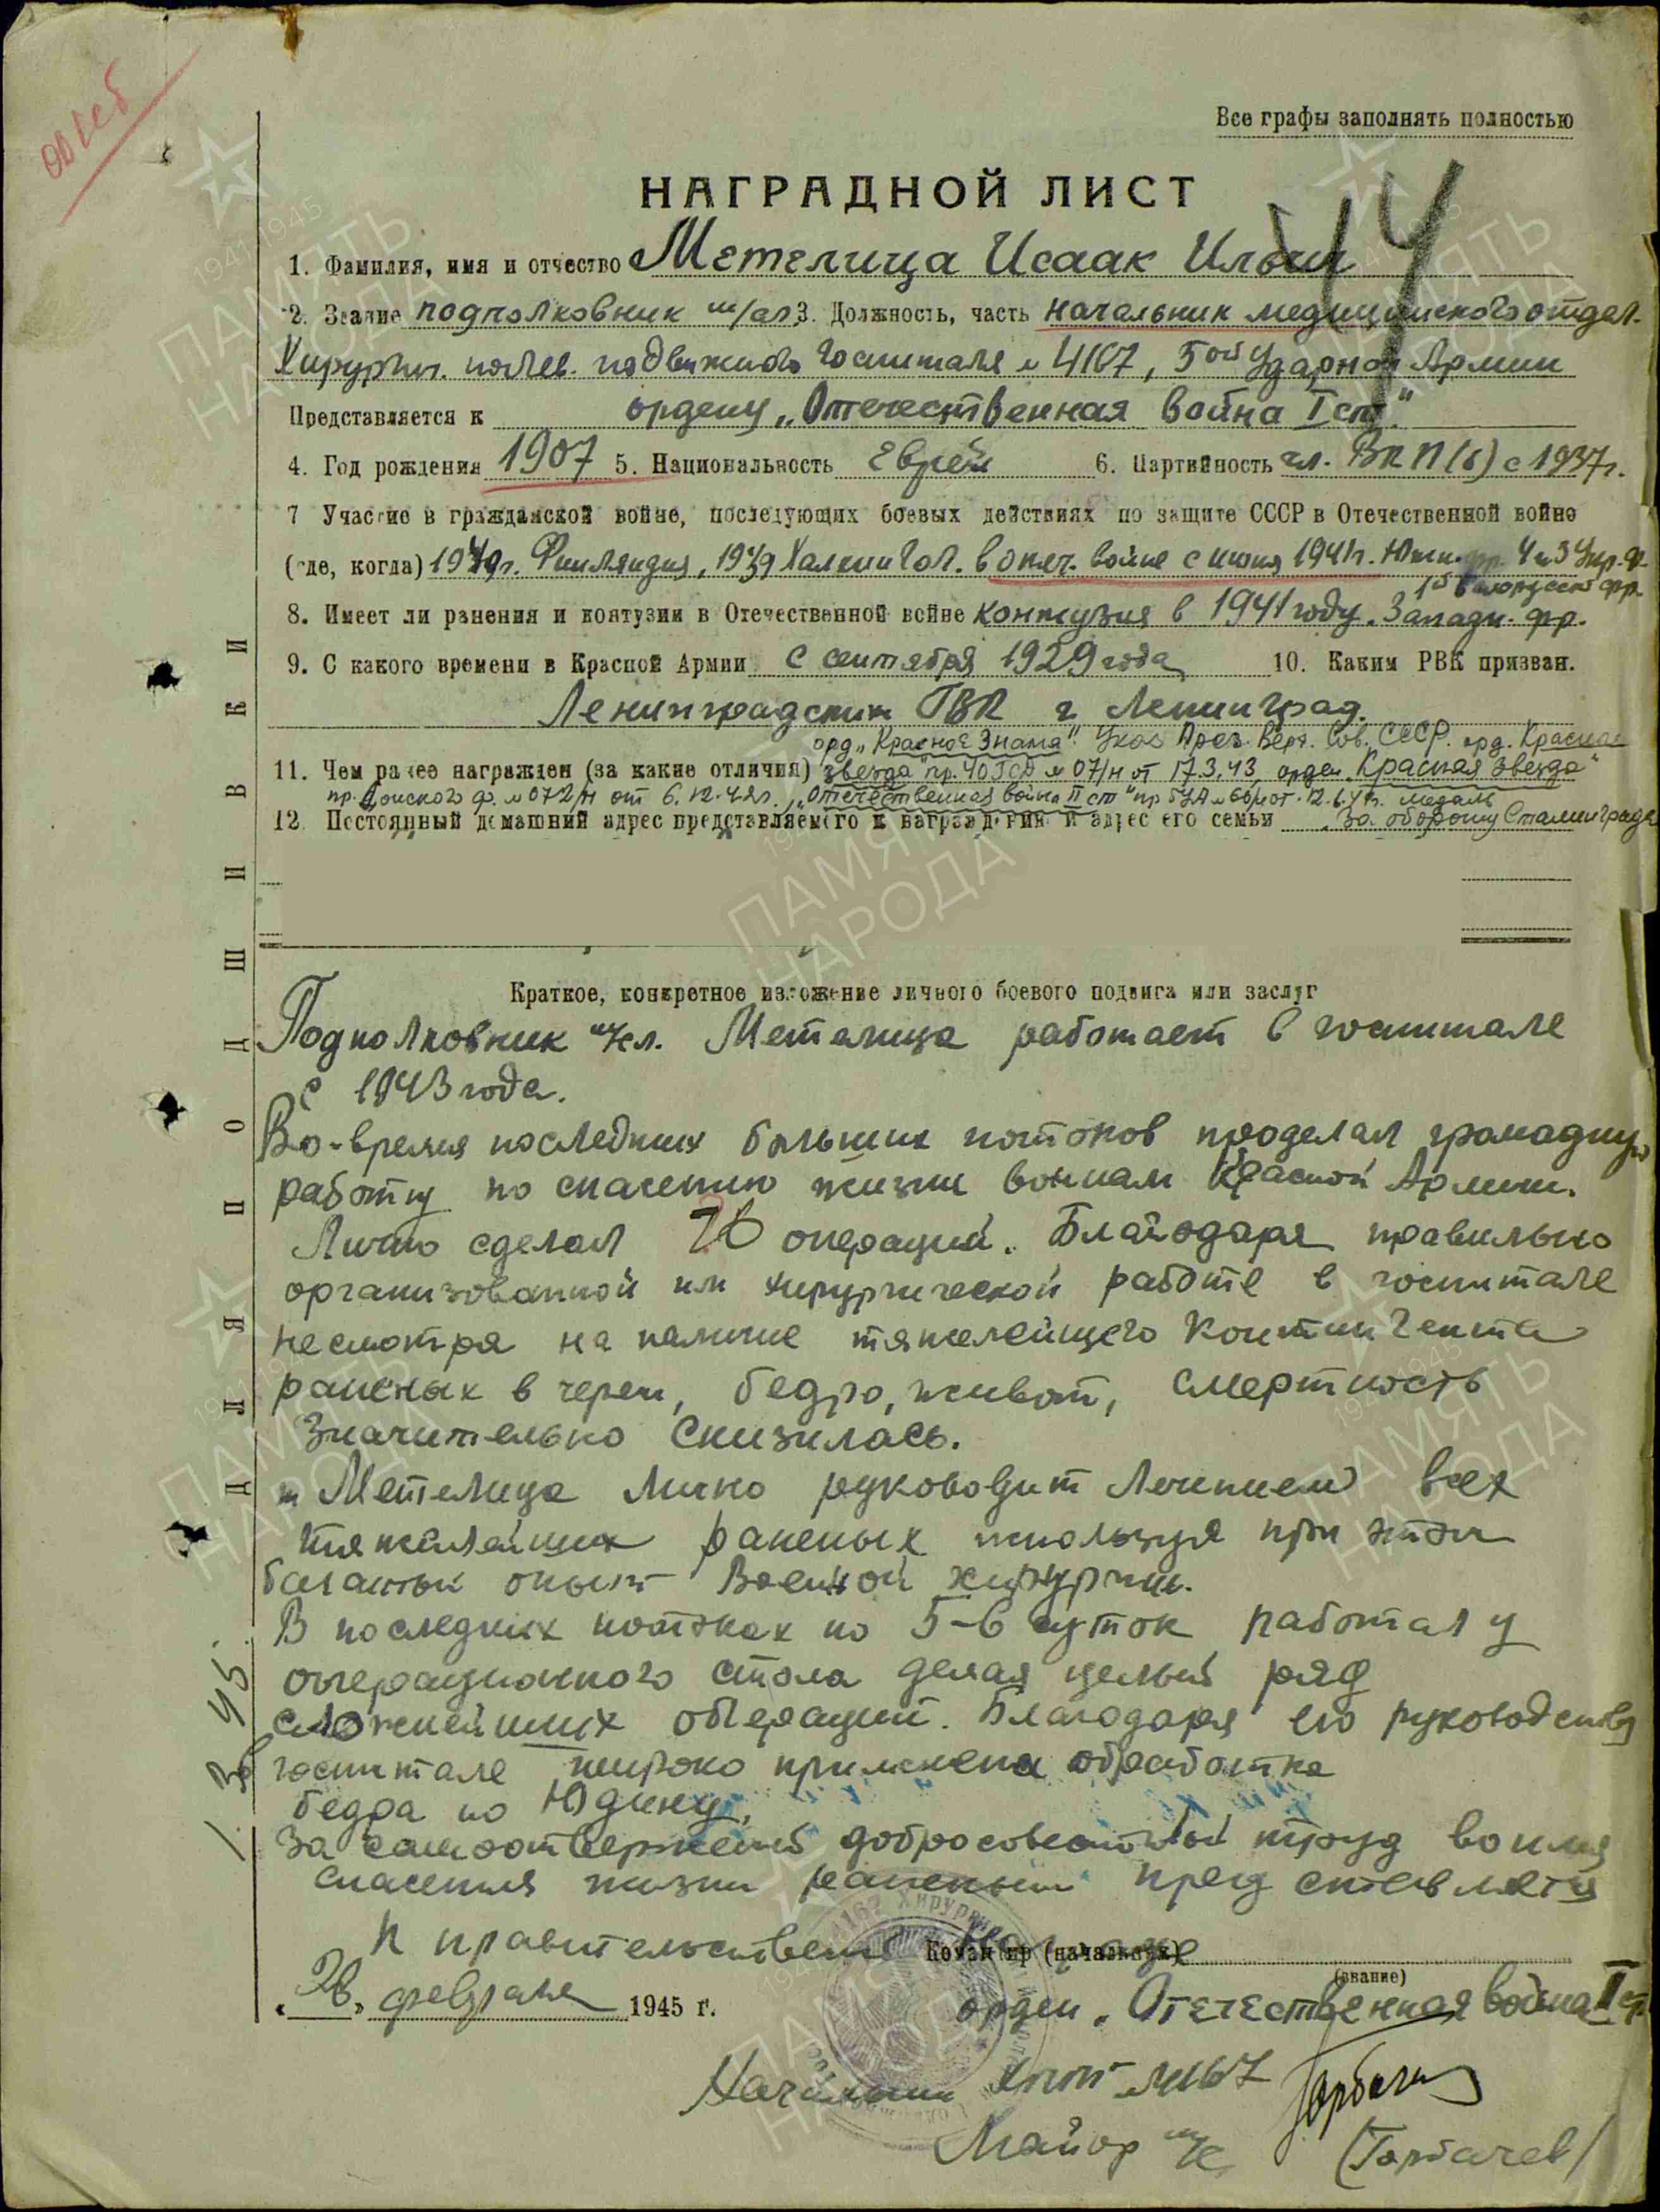 Все графы заполнять полностью
НАГРАДНОЙ ЛИСТ
1. Фамилия, имя и отчество Метелица Исаак Ильич
2. Звание подполковник м/сл 3. Должность, часть начальник медицинского отдел.
Хирургич. полев. подвижного госпиталя № 4167, 5ой Ударной Армии
Представляется к ордену „Отечественная война I ст."
4. Год рождения 1907 5. Национальность Еврей 6. Партийность чл. ВКП(б) с 1937г.
7 Участие в гражданской войне, последующих боевых действиях по защите СССР в Отечественной войне
(где, когда) 1940г. Финляндия, 1939 Халкин Гол. в отеч. войне с июня 1941г. Южн. фр. 4 и 3 Укр. Ф.
1й Белорусский фр.
8. Имеет ли ранения и контузии в Отечественной войне контузия в 1941 году. Западн. фр.
9. С какого времени в Красной Армии с сентября 1929 года 10. Каким РВК призван.
Ленинградским ГВК г. Ленинград.
орд „Красное Знамя" Указ През. Верх. Сов. СССР. орд. Красная
11. Чем ранее награжден (за какие отличия) звезда" пр. 40 ГСД № 07/н от 17.3.43, орден „Красная звезда"
пр. Донского ф. № 072/н от 6.12.42г., „Отечественная война II ст" пр 5УА № от 12.6.44г. медаль
12. Постоянный домашний адрес представляемого к награждению и адрес его семьи „За оборону Сталинграда
ДЛЯ ПОДШИВКИ
Краткое, конкретное изложение личного боевого подвига или заслуг
Подполковник м/сл. Метелица работает в госпитале
с 1943 года.
Во-время последних больших потоков проделал громадную
работу по спасению жизни воинам Красной Армии.
Лично сделал 76 операций. Благодаря правильно
организованной им хирургической работе в госпитале
несмотря на наличие тяжелейшего контингента
раненых в череп, бедро, живот, смертность
значительно снизилась.
т Метелица лично руководит лечением всех
тяжелейших раненых используя при этом
богатый опыт военной хирургии.
В последних потоках по 5-6 суток работал у
операционного стола делая целый ряд
сложнейших операций. Благодаря его руководству
в госпитале широко применена обработка
бедра по Юдину.
За самоотверженный добросовестный труд во имя
спасения жизни раненым представляется
к правительственной награде Командир (начальник)
(звание)
„28" февраля 1945 г.
орден „Отечественная война I ст.
Начальник ХППГ № 4167
Майор м/с (Горбачев)